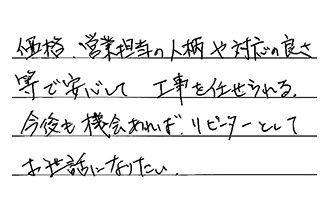 価格、営業担当の人柄や対応の良さ
等で安心して 工事を任せられる。
今後も機会あれば、リピーターとして
お世話になりたい。